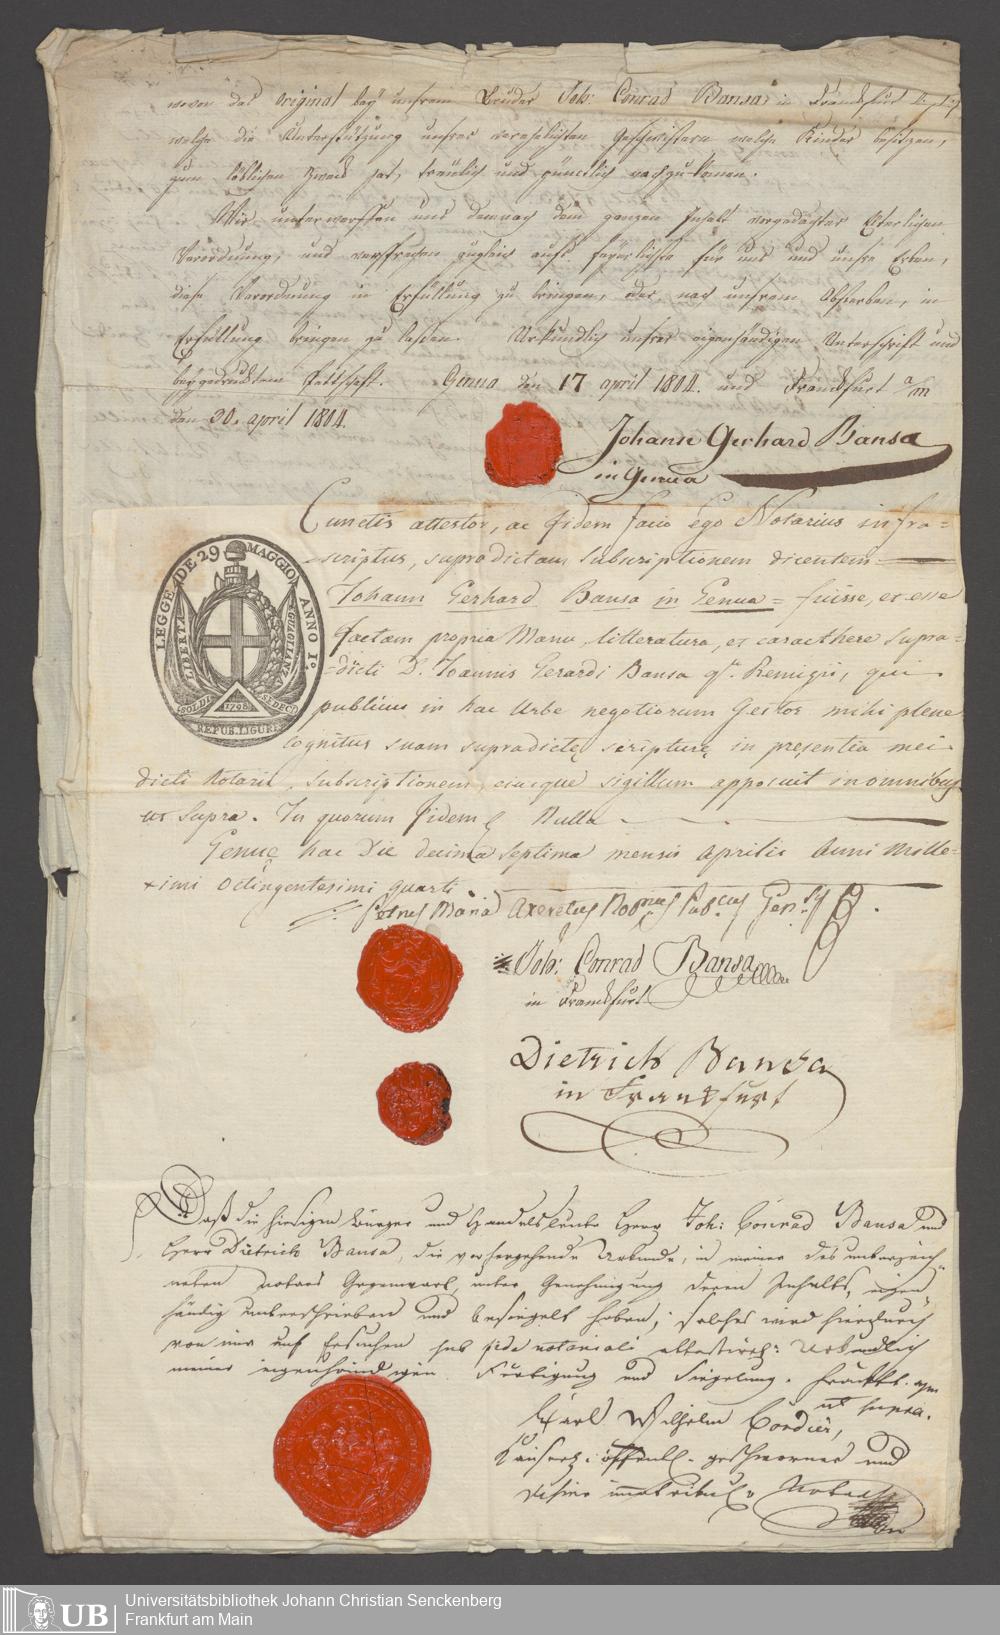 wovon das Original bey unserm Bruder Joh: Conrad Bansa in Franckfurt
welche die Unterstützung unsrer verehelichten Geschwistern welche Kinder besitzen,
zum löblichen Zweck hat, treulich und pünctlich nachzukomen.
Wir unterwerffen uns demnach dem ganzen Inhalt vorgedachter Elterlichen
Verordnung, und versprechen zugleich aufs feyerlichste für uns und unsre Erben,
diese Verordnung in Erfüllung zu bringen, oder nach unserm Absterben, in
Erfüllung bringen zu lassen. Urkundlich unsrer eigenhändigen Unterschrift und
beygedrucktem Pettschaft. Genua den 17 april 1804. und Franckfurt a/m
den 30. april 1804.
Johann Gerhard Bansa
in Genua
Cunctis attestor, ac fidem facio Ego Notarius infra=
scriptus, supradictam subscriptionem dicentem
Johann Gerhard Bansa in Genua = fuisse, et esse
factam propria Manu, litteratura, et caracthere supra=
=dicti D. Joannis Gerardi Bansa q. Remigii, qui
publicus in hac Urbe negotiorum Gestor mihi plene
cognitus suam supradictę scripturę in pręsentia mei
dicti Notarii, subscriptionem, eiusque sigillum apposuit in omnibus
ut supra. In quorum fidem Nulla
Genuę hac Die decima septima mensis Aprilis Anni Mille=
simi Octingentesimi quarti
Petrus Maria
LEGGE DE 29 MAGGIO ANNO 1º
LIBERTA
EGUAGLIANZA
SOLDI SEDECI
1798
REPUB. LIGURE
Joh: Conrad Bansa
in Franckfurt
Dietrich Bansa
in Frankfurt
Daß die hiesigen Bürger und Handelsleute Herr Joh: Conrad Bansa und
Herr Dietrich Bansa, die vorhergehende Urkunde, in meiner des unterzeich=
neten notars Gegenwart, unter Genehmigung deren Inhalts, eigen=
händig unterschrieben und besiegelt haben; solches wird hierdurch
von mir auf Ersuchen sub fide notariali attestirt: Urkundlich
meiner eigenhändigen Fertigung und Siegelung. Franckf.
ut supra.
Carl Wilhelm Cordier,
Kaiserl: öffentl. geschworner und
immatricul.
UB Universitätsbibliothek Johann Christian Senckenberg
Frankfurt am Main